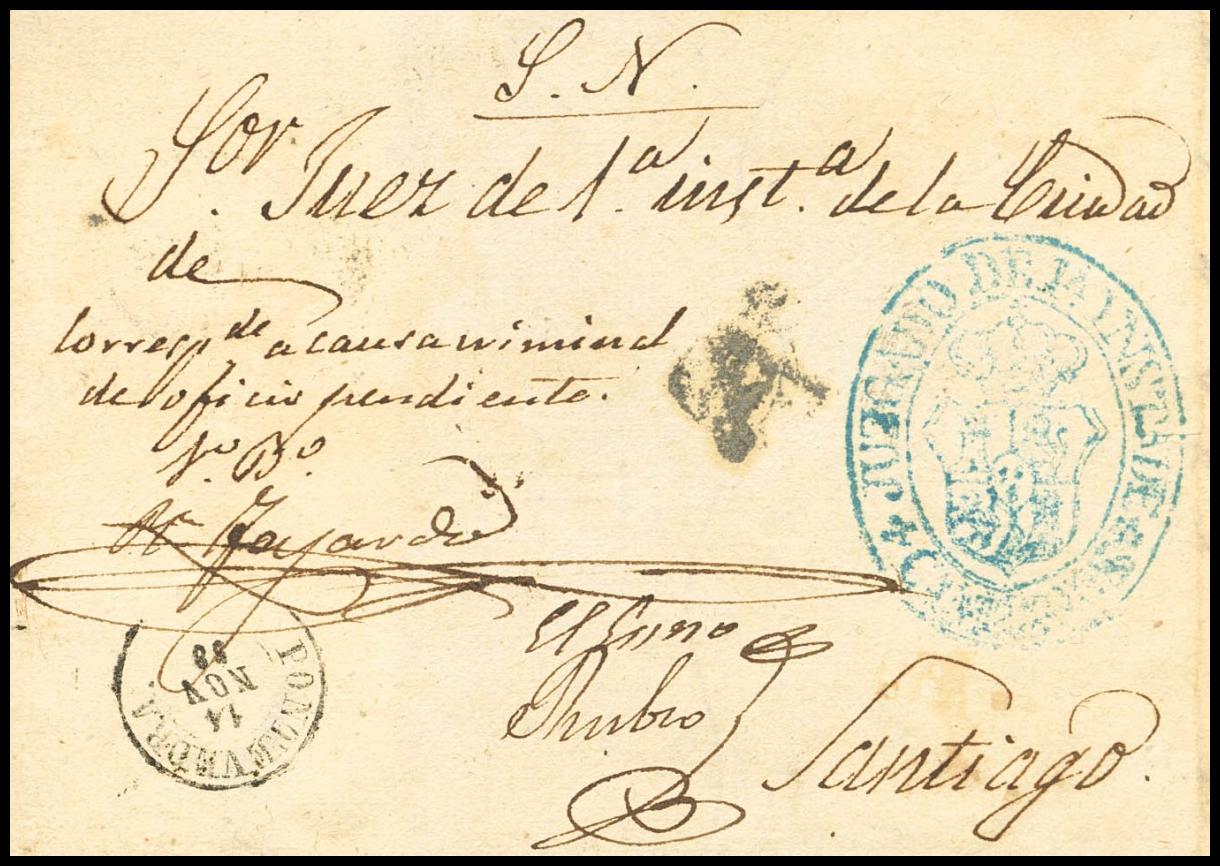 S. N.
Sor. Juez de 1.ª inst.ª de la Ciudad
de
Corresp.de a causa criminal
de oficio pendiente.
Vo. Bo.
Fajardo
El Essno
Rubio
Santiago.
JUZGADO DE 1ª INST.ª DE
PONTEVEDRA
14
NOV
88